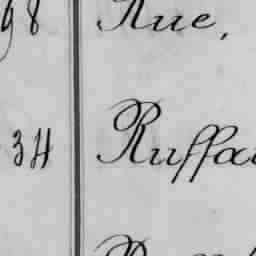 98 Rue,
34 Ruffa